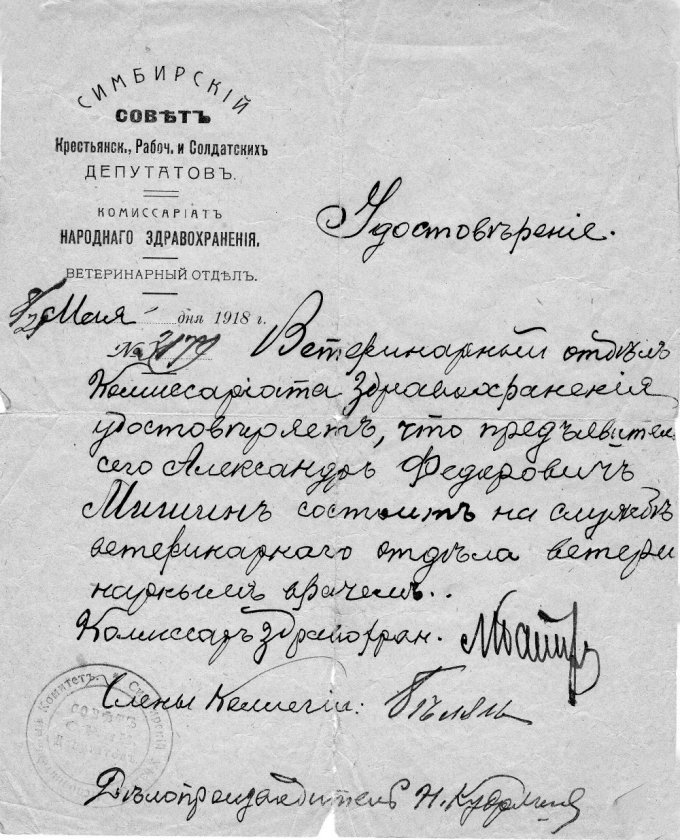 СИМБИРСКІЙ
СОВѢТЪ
Крестьянск., Рабоч. и Солдатскихъ
ДЕПУТАТОВЪ.
КОМИССАРІАТЪ
НАРОДНАГО ЗДРАВОХРАНЕНІЯ.
ВЕТЕРИНАРНЫЙ ОТДѢЛЪ.
Мая дня 1918 г.
№
Удостовѣреніе.
Ветеринарный отдѣлъ
Комиссаріата Здравоохраненія
удостовѣряетъ, что предъявитель
сего Александръ Федоровичъ
Мишинъ состоитъ на службѣ
ветеринарнаго отдѣла ветери
нарнымъ врачемъ..
Комиссаръ Здравохран.
Члены Коллегіи:
Дѣлопроизводитель Н.
СОВѢТЪ